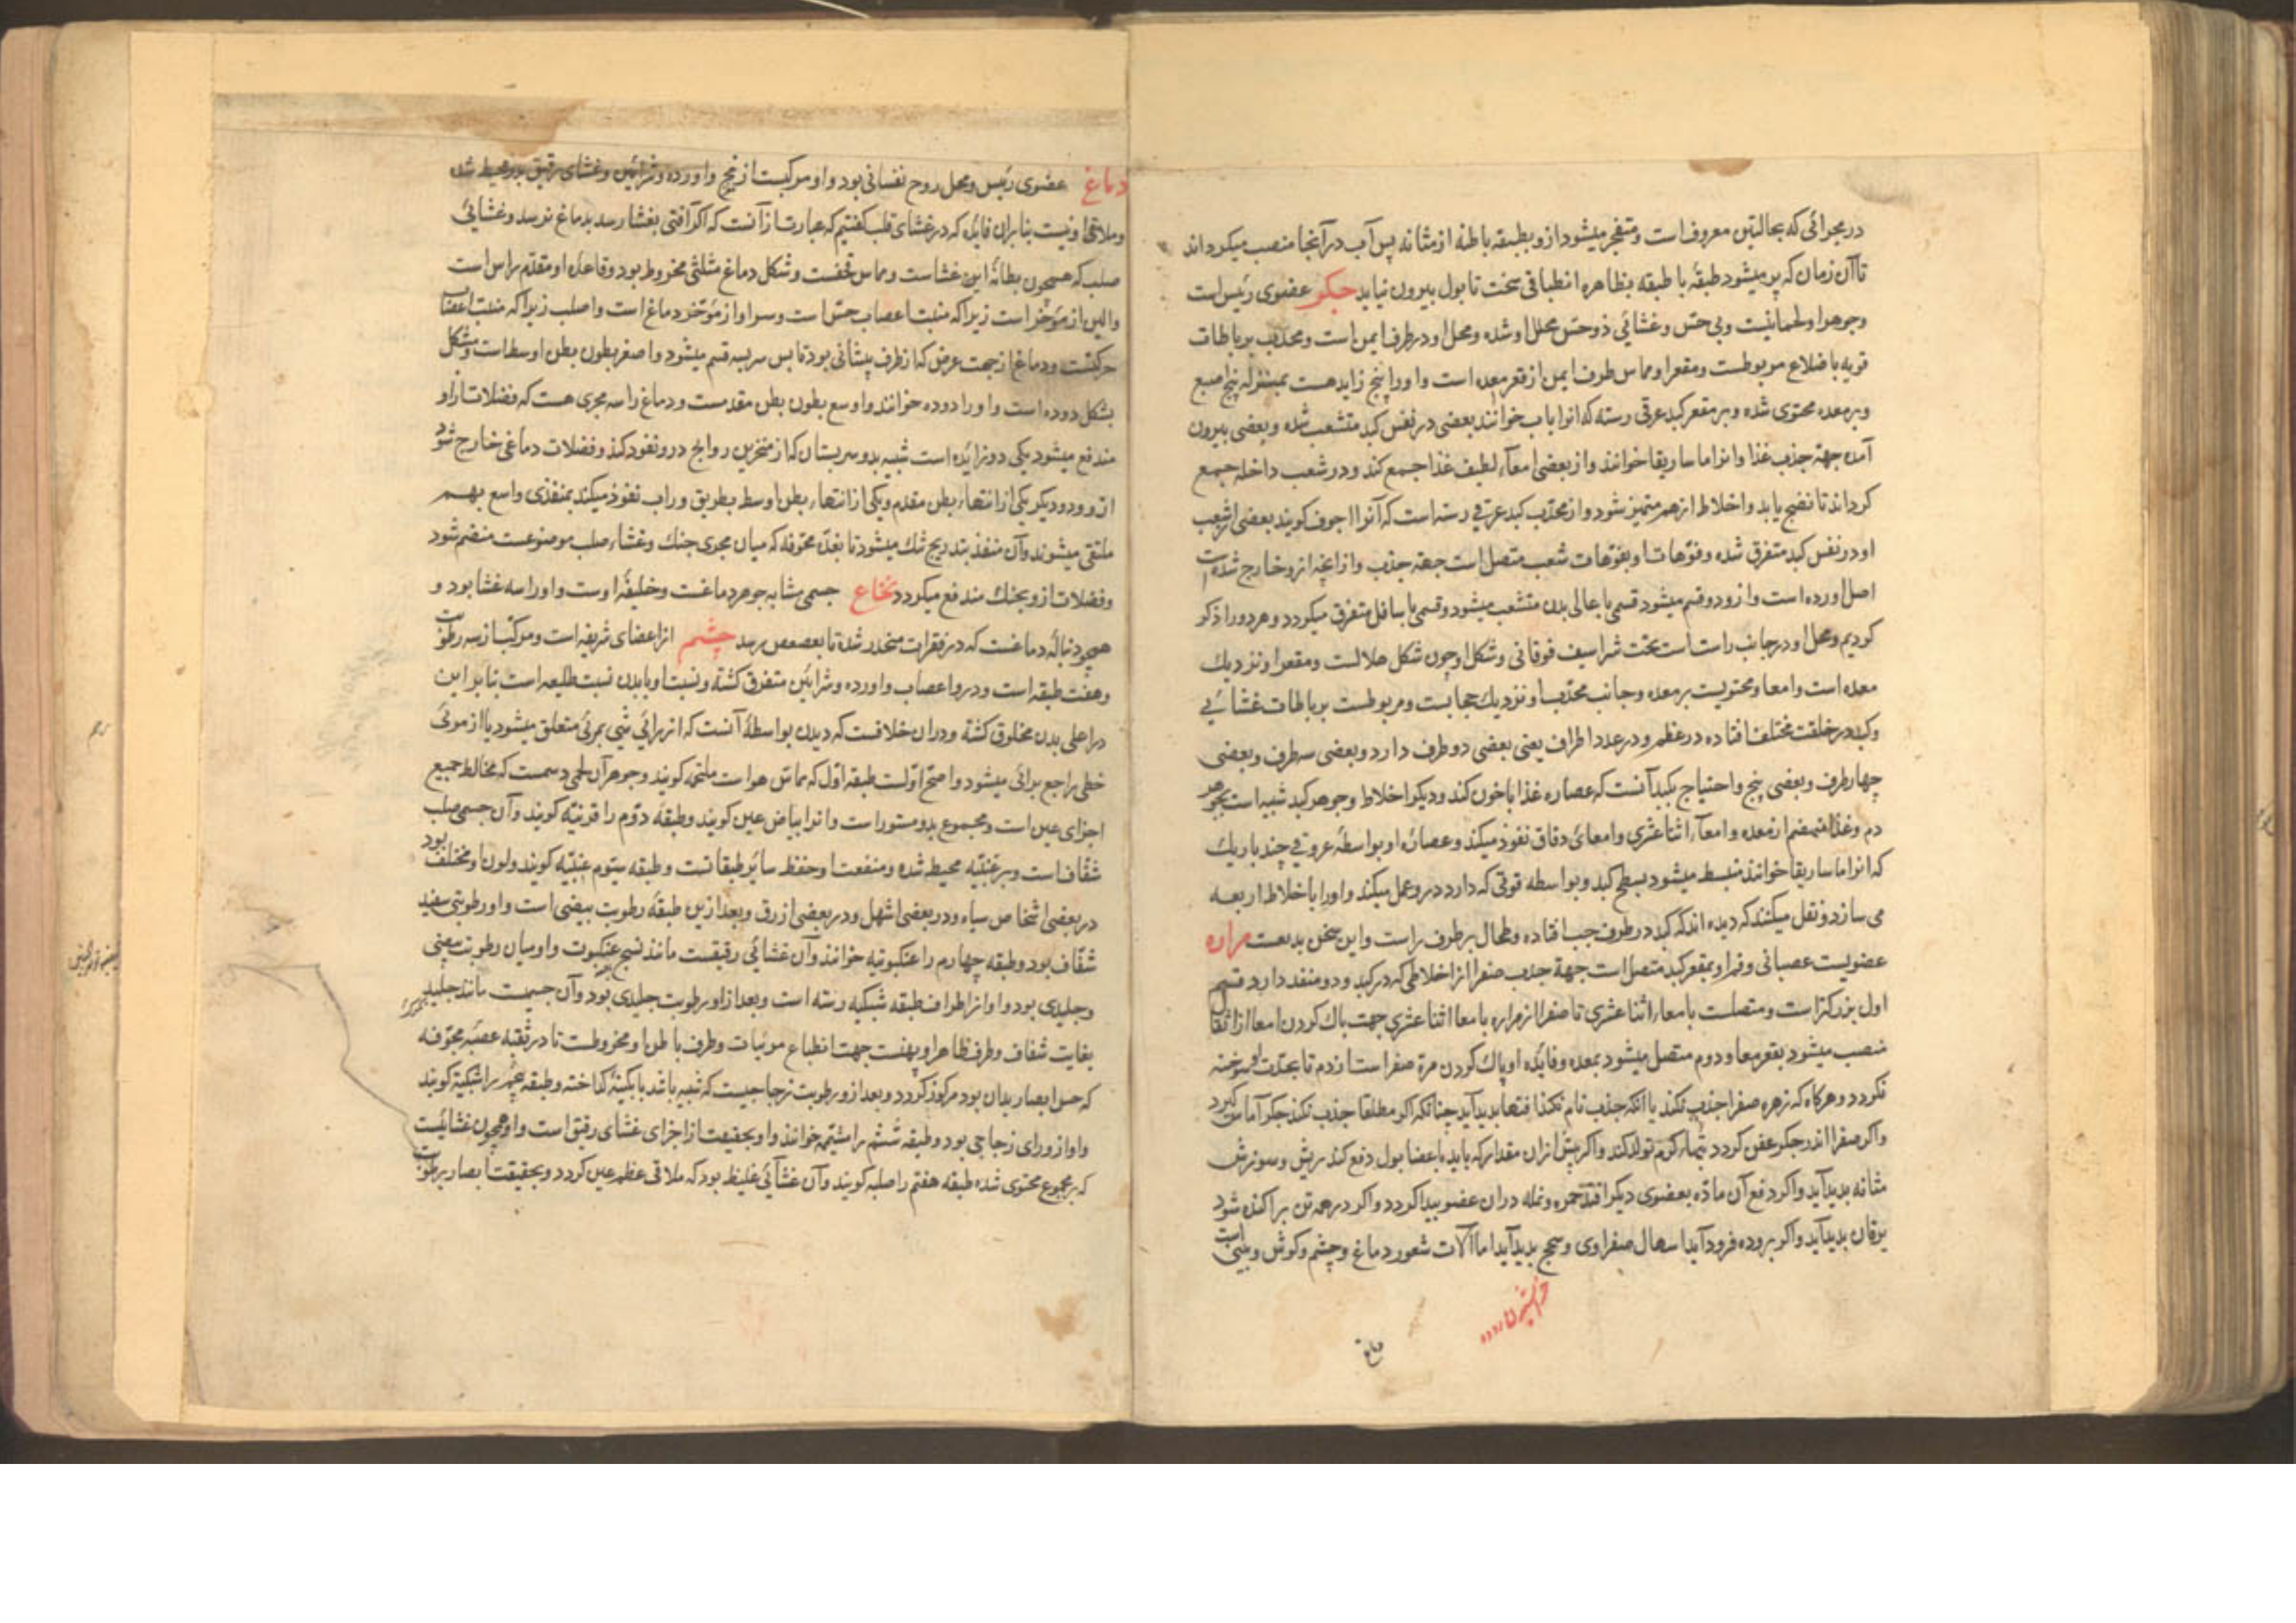 در مجرائی که بحالبین معروفست و منفجر میشود ازو بطبقه باطنه از مثانه پس آب در آنجا منصب میکرداند
تا آن زمان که پر میشود طبقهٔ با طبقه بظاهره انطباقی سخت تا بول بیرون نیاید جکر عضوی رئیس است
وجوهر او لحمانیست و بی حس و غشائی ذو حس مجلل او شده و محل او در طرف ایمن است و محدب بر باطات
قویه باضلاع مربوطست و مقعر او مماس طرف ایمن از قعر معده است و او را پنج زاید هست بمنزله پنج اصبع
و بر معده محتوی شده و بر مقعر کبد عرقی رسته که انرا باب خوانند بعضی در نفس کبد متشعب شده و بعضی بیرون
آمده جهة جذب غذا و انرا ماساریقا خوانند و از بعضی امعآء لطیف غذا جمع کند و در شعب داخله جمع
کرداند تا نضج یابد و اخلاط از هم متمیز شود و از محدب کبد عرقی رسته است که آنرا اجوف کویند بعضی از شعب
او در نفس کبد متفرق شده و فوهات او بفوهات شعب متصل است جهة جذب و از آنچه ازو خارج شده است
اصل اورده است و ازو دو قسم میشود قسمی باعالی بدن متشعب میشود و قسمی باسافل متفرق میکردد و هر دو را ذکر
کردیم و محل او در جانب راست است تحت شراسیف فوقانی و شکل او چون شکل هلالست و مقعر او نزدیک
معده است و امعا و محتویست بر معده و جانب محدب او نزدیک حجابست و مربوطست برباطات غشائی
و کبد در خلقت مختلف افتاده در عظم و در عدد اطراف یعنی بعضی دو طرف دارد و بعضی سه طرف و بعضی
چهار طرف و بعضی پنج و احتیاج بکبد آنست که عصاره غذا با خون کند و دیکر اخلاط و جوهر کبد شبیه است بجوهر
دم و غذا منهضم از معده و امعآء اثنا عشری و امعای دقاق نفوذ میکند و عصاره او بواسطهٔ عروقی چند باریک
که انرا ماساریقا خوانند منبسط میشود بسطح کبد و بواسطه قوتی که دارد درو عمل میکند و او را با خلاط اربعه
می سازد و نقل میکنند که دیده اند که کبد در طرف چپ افتاده و طحال بر طرف راست و این سخن بدیعست مراره
عضویست عصبانی و فم او بمقعر کبد متصل است جهة جذب صفرا از اخلاطی که در کبد و دو منفد دارد قسم
اول بزرکتر است و متصلست بامعاء اثنا عشری تا صفرا از مراره بامعا اثنا عشری جهت پاک کردن امعا از اثقال
منصب میشود بقعر معا و دوم متصل میشود بمعده و فایده او پاک کردن مرة صفر است از دم تا بحدت او سوخته
نکردد و هرکاه که زهره صفرا جذب نکند یا آنکه جذب تام نکند آفتها بدید آید چنانکه اکر مطلقا جذب نکند جکر آماس کیرد
و اکر صفرا اندر جکر عفن کردد تبهاء کرم تولد کند و اکر بیش از ان مقدار که باید باعضا بول دفع کند ریش و سوزش
مثانه بدید آید و اکر دفع آن ماده بعضوی دیکر افتد حمره و نمله دران عضو پیدا کردد و اکر در همه تن پراکنده شود
یرقان بدید آید و اکر بروده فرود آید اسهال صفراوی و سحج بدید آید اما آلات شعور دماغ و چشم و کوش و بینی است
دماغ
دماغ عضوی رئیس و محل روح نفسانی بود و او مرکبست از مخ و اورده و شرائین و غشای رقیق برو محیط شده
و ملاقی او نیست بنابران فایده که در غشای قلب کفتیم که عبارت از آنست که اکر آفتی بغشا رسد بدماغ نرسد و غشائی
صلب که همچون بطانهٔ این غشاست و مماس قحفست و شکل دماغ مثلثی مخروط بود و قاعده او مقدم راس است
و الین از مؤخر است زیرا که منبت اعصاب حس است و سرا و از مؤخر دماغ است و اصلب زیرا که منبت اعصاب
حرکتست و دماغ از جهت عرض که از طرف پیشانی بود تا پس سر بسه قسم میشود و اصغر بطون بطن اوسط است و مشکل
بشکل دوده است و او را دوده خوانند و اوسع بطون بطن مقدمست و دماغ را سه مجری هست که فضلات از او
مندفع میشود یکی دو زائده است شبیه بدو سر پستان که از منخرین روایح درو نفوذ کند و فضلات دماغی خارج شود
ازو و دو دیکر یکی از انتهاء بطن مقدم و یکی از انتهاء بطن اوسط بطریق وراب نفوذ میکند بمنفذی واسع بهم
ملتقی میشوند و آن منفذ بتدریج تنک میشود تا بغدّه مجوفه که میان مجری حنک و غشاء صلب موضوعست منضم شود
و فضلات ازو بحنک مندفع میکردد نخاع جسمی مشابه جوهر دماغست و خلیفهٔ اوست و او را سه غشا بود و
همچو دنبالهٔ دماغست که در فقرات منحدر شده تا بعصعص برسد چشم از اعضای شریفه است و مرکب از سه رطوبت
و هفت طبقه است و درو اعصاب و اورده و شرائین متفرق کشته و نسبت او با بدن نسبت طلیعه است بنا برین
در اعلی بدن مخلوق کشته و دران خلافست که دیدن بواسطهٔ آنست که از رائی شئی بمرئی متعلق میشود یا از مرئی
خطی راجع برائی میشود و اصح اولست طبقه اول که مماس هواست ملتحمه کویند و جوهر آن لحمی دسمست که مخالط جمیع
اجزای عین است و مجموع بدو مستور است و انرا بیاض عین کویند و طبقه دوّم را قرنیه کویند و آن جسمی صلب
شفّاف است و بر عنبیّه محیط شده و منفعت او حفظ سائر طبقاتست و طبقه سیوم عنبیّه کویند و لون او مختلف بود
در بعضی اشخاص سیاه و در بعضی اشهل و در بعضی ازرق و بعد ازین طبقهٔ رطوبت بیضی است و او رطوبتی سفید
شفّاف بود و طبقه چهارم را عنکبوتیه خوانند و آن غشائی رقیقست مانند نسج عنکبوت و او میان رطوبت بیضی
و جلیدی بود و او از اطراف طبقه شبکیه رسته است و بعد از او رطوبت جلیدی بود و آن جسیمست مانند جلید
بغایت شفاف و طرف ظاهر او پهنست جهت انطباع مرئیات و طرف باطن او مخروطست تا در ثقبه عصبه مجوّفه
که حس ابصار بدان بود مرکوز کردد و بعد ازو رطوبت زجاجیست که شبیه باشد بآبکینهٔ کداخته و طبقه پنجم را شبکیّه کویند
و او از ورای زجاجی بود و طبقه ششم را مشیمّه خوانند و او بحقیقت از اجزای غشای رقیق است و او همچون غشائیست
که بر مجموع محتوی شده طبقه هفتم را صلبه کویند و آن غشآئی غلیظ بود که ملاقی عظم عین کردد و بحقیقت ابصار برطوبت